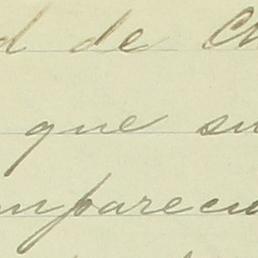 d de C
que su
mparecu